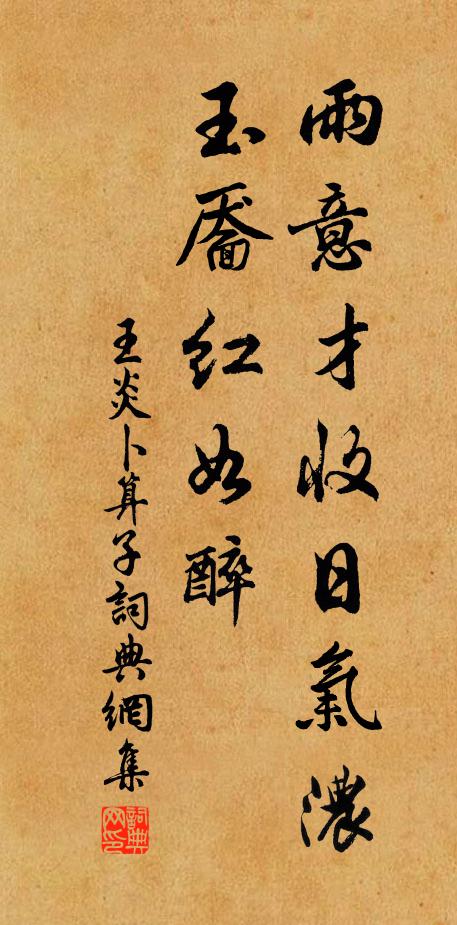 雨意才收日氣濃
玉靨紅如醉
王炎卜算子詞典網集
詞典网印